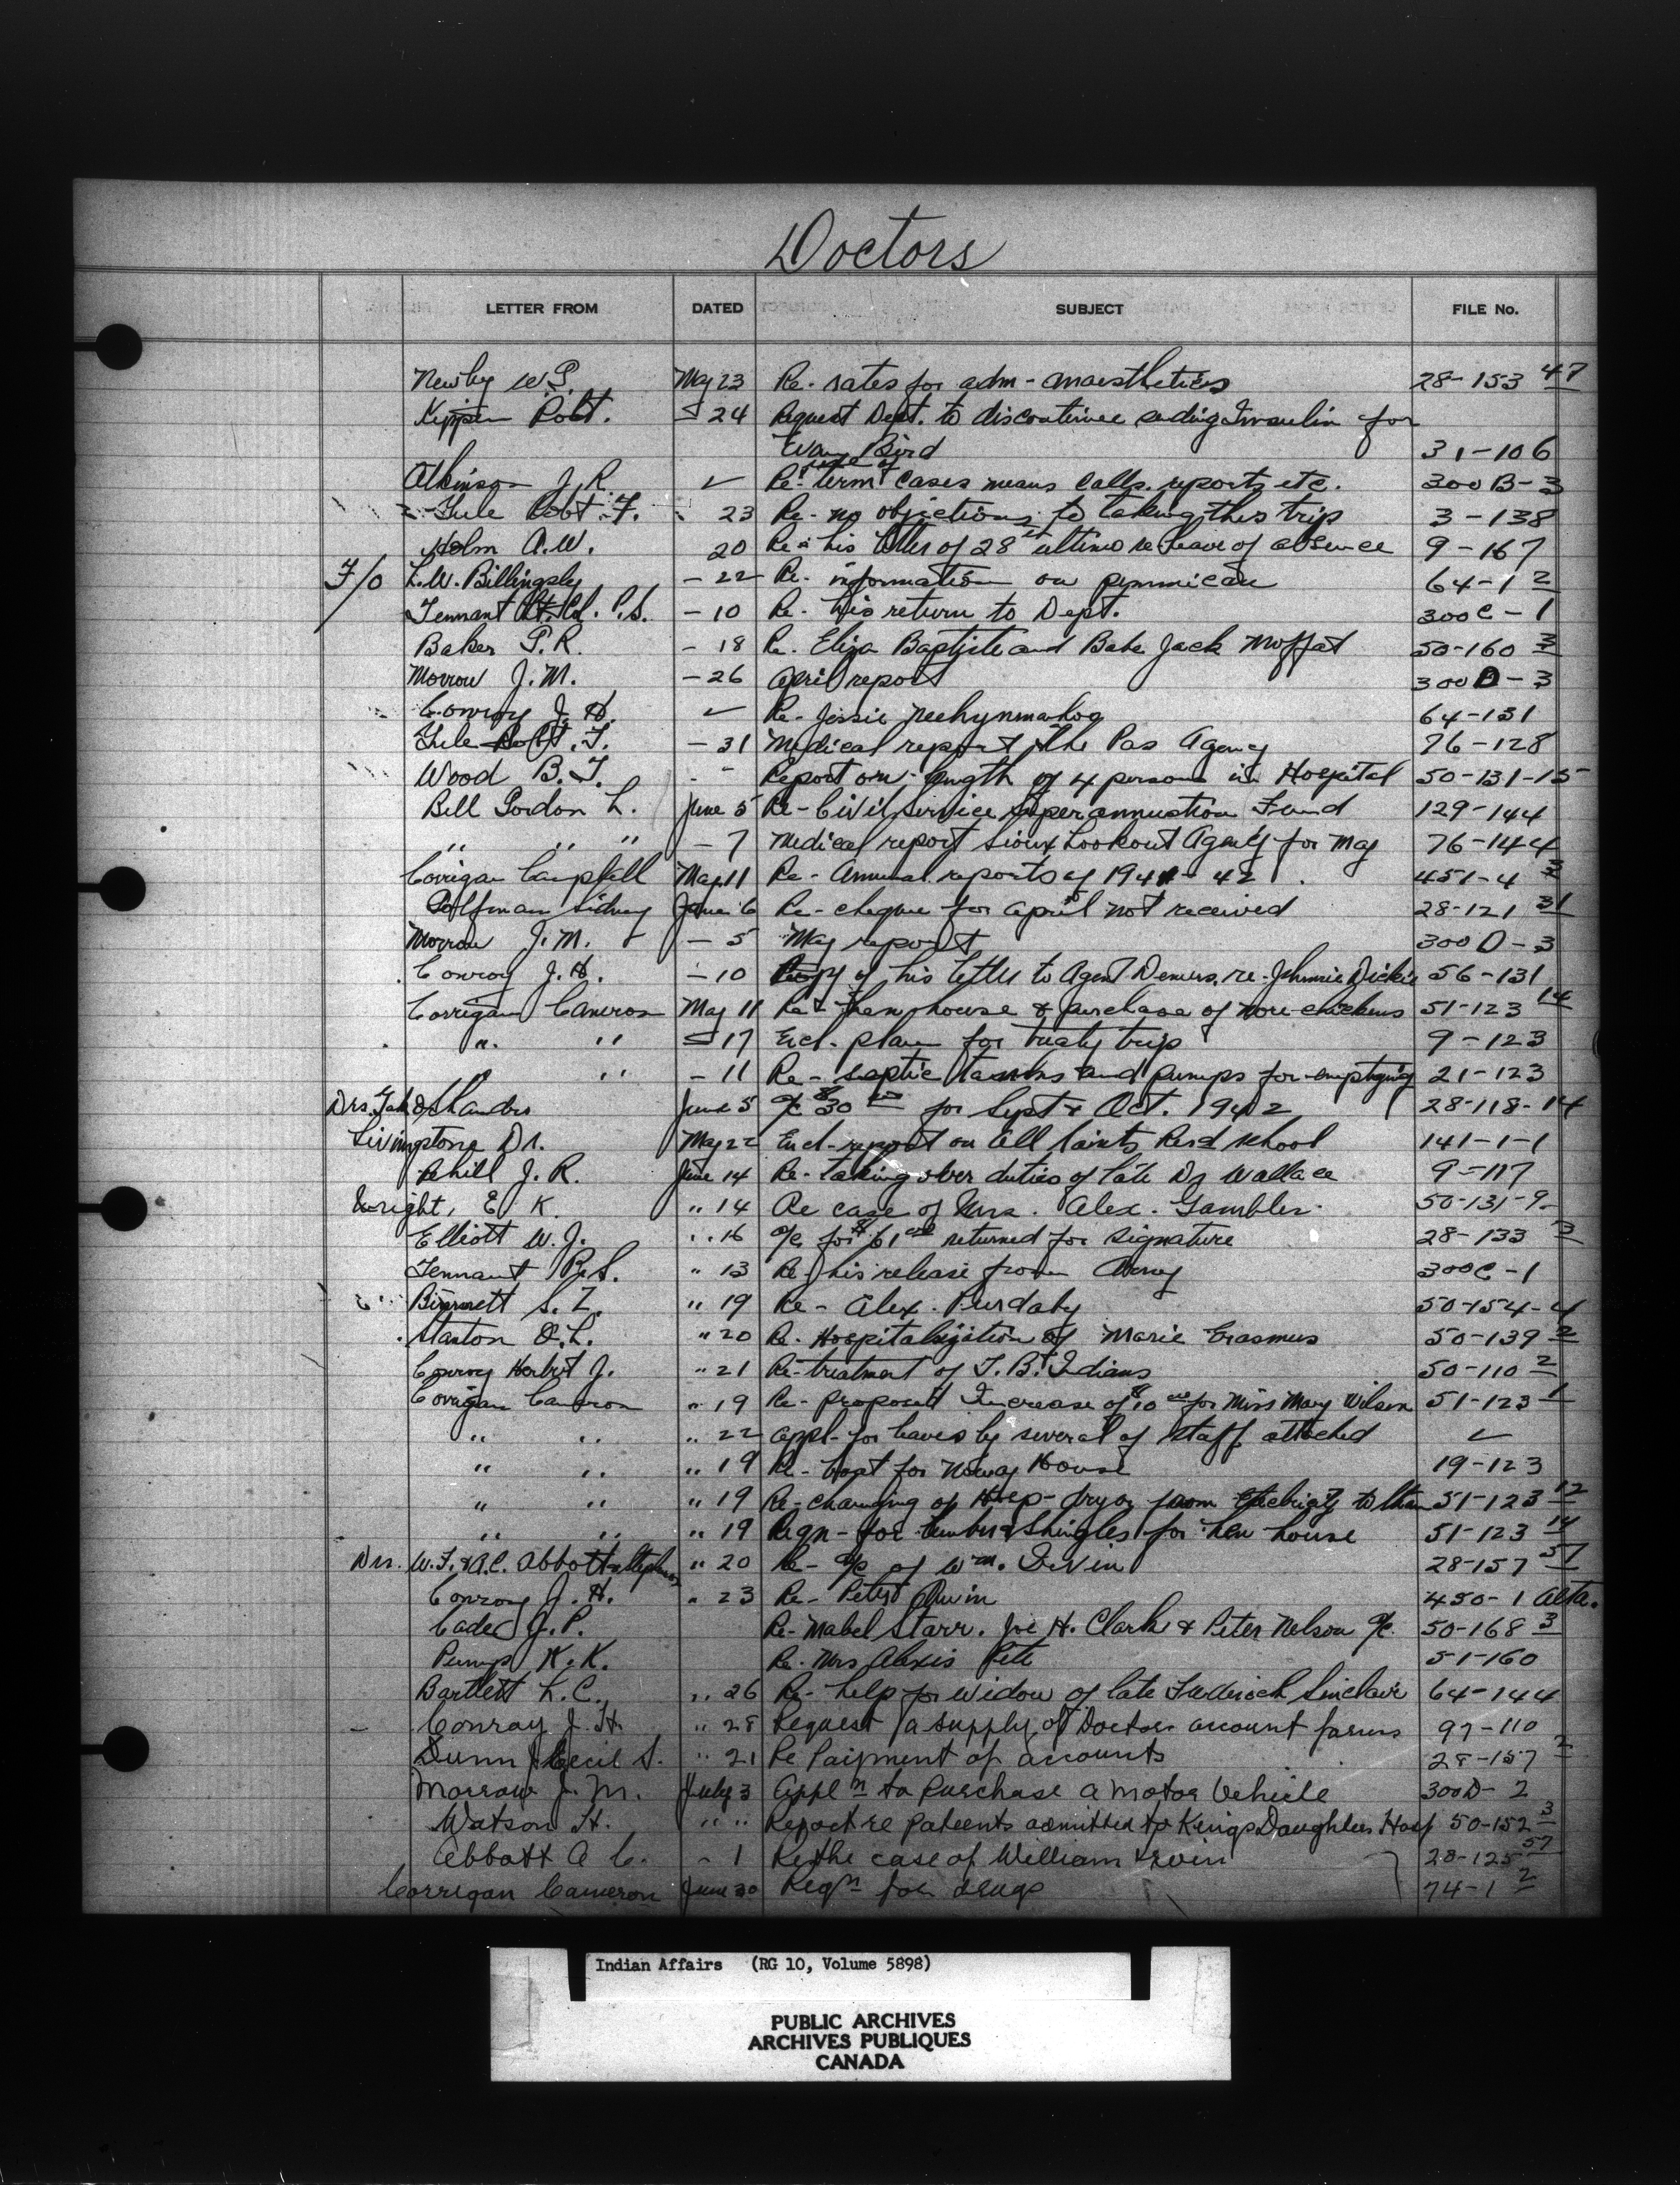 Doctors
LETTER FROM DATED SUBJECT FILE No.
Newby W.G. May 23 Re- rates for adm- anaesthetics 28-153 47
Kippen Robt. - 24 Request Dept. to discontinue sending Insulin for
Evan Bird 31-106
use of
Atkinson J.R. ✓ Re- term cases means calls, reports, etc. 300 B-3
Yule Robt. F. 23 Re- no objections to taking this trip 3-138
Holm A.W. 20 Re- his letter of 28th ultimo re leave of absence 9-167
F/O L.W. Billingsly - 22 Re- information on pemmican 64-1 2
Tennant Lt. Col. P.S. - 10 Re- his return to Dept. 300C-1
Baker P.R. - 18 Re. Eliza Baptiste and Babe Jack Moffat 50-160 3
Morrow J.M. - 26 April report 300 D-3
Conroy J.H. ✓ Re- Jessie 64-131
Yule Robt. F. - 31 Medical report The Pas Agency 76-128
Wood B.T. - " Report on length of 4 persons in Hospital 50-131-15
Bell Gordon L. June 5 Re- Civil Service Superannuation Fund 129-144
" " " - 7 Medical report Sioux Lookout Agency for May 76-144
Corrigan Campbell May 11 Re- Annual reports of 1941-42 451-4 3
Golfman Sidney June 6 Re- cheque for April not received 28-121 31
Morrow J.M. - 5 May report 300 D-3
Conroy J.H. - 10 Copy of his letter to Agent Demers, re- Johnnie Dickie 56-131
Corrigan Cameron May 11 Re- hen house & purchase of more chickens 51-123 14
" " - 17 Encl- plan for treaty trip 9-123
" " - 11 Re- septic tanks and pumps for emptying 21-123
Drs. & Shandro June 5 a/c $30 00 for Sept & Oct. 1942 28-118-14
Livingstone Dr. May 22 Encl- report on All Saints Resd school 141-1-1
J.R. June 14 Re- taking over duties of late Dr Wallace 9-117
Wright, E K. " 14 Re case of Mrs. Alex. Gambler 50-131-9
Elliott W.J. " 16 a/c for $61 00 returned for signature 28-133 3
Tennant P.S. " 13 Re- his release from Army 300C-1
S.Z. " 19 Re- Alex. Purdaby 50-154-4
Stanton O.L. " 20 Re- Hospitalization of Marie Erasmus 50-139 2
Conroy Herbert J. " 21 Re- treatment of T.B. Indians 50-110 2
Corrigan Cameron " 19 Re- proposed Increase of $10 00 for Miss Mary Wilson 51-123 1
" " " 22 appl- for leaves by several of staff attached ✓
" " " 19 Re- boat for Norway House 19-123
" " " 19 Re- changing of Hosp- dryer from electricity to steam 51-123 12
" " " 19 Reqn- for lumber & shingles for hen house 51-123 14
Drs. W.F. & A.C. Abbott & Stephens " 20 Re- a/c of Wm. Irvin 28-157 57
Conroy J.H. " 23 Re- Peter 450-1 Alta.
Cade J.P. Re- Mabel Starr. Joe H. Clark & Peter Nelson a/c. 50-168 3
Pump K.K. Re. Mrs Alexis Pete 51-160
Bartlett L.C. " 26 Re- help for widow of late Frederick Sinclair 64-144
Conroy J.H. " 28 Request a supply of Doctors account forms 97-110
Dunn J. Cecil S. " 21 Re Paiyment of accounts 28-157 2
Morrow J.M. July 3 Appl n to purchase a Motor Vehicle 300D-2
Watson H. " " Report re patients admitted to Kings Daughters Hosp 50-152 3
Abbott A C. - 1 Re the case of William Irvin 28-125 57
Corrigan Cameron June 30 Reqn for drugs 74-1 2
Indian Affairs (RG 10, Volume 5898)
PUBLIC ARCHIVES
ARCHIVES PUBLIQUES
CANADA